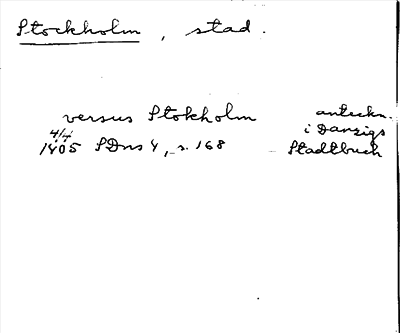 Stockholm, stad.
versus Stokholm anteckn.
4/4 i Danzigs
1405 SDns 4, s. 168 Stadtbuch